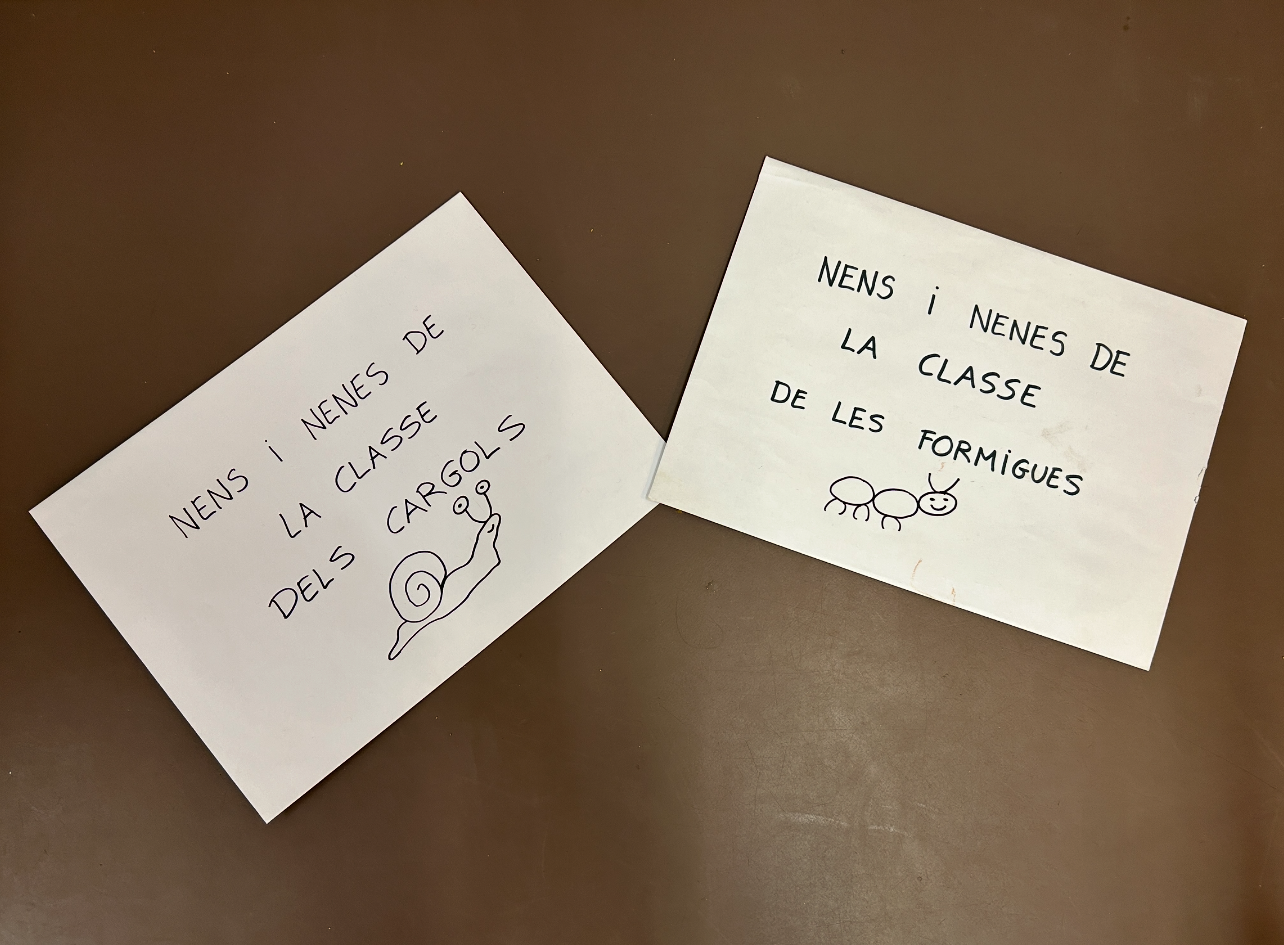 NENS i NENES DE
LA CLASSE
DELS CARGOLS
NENS i NENES DE
LA CLASSE
DE LES FORMiGUES